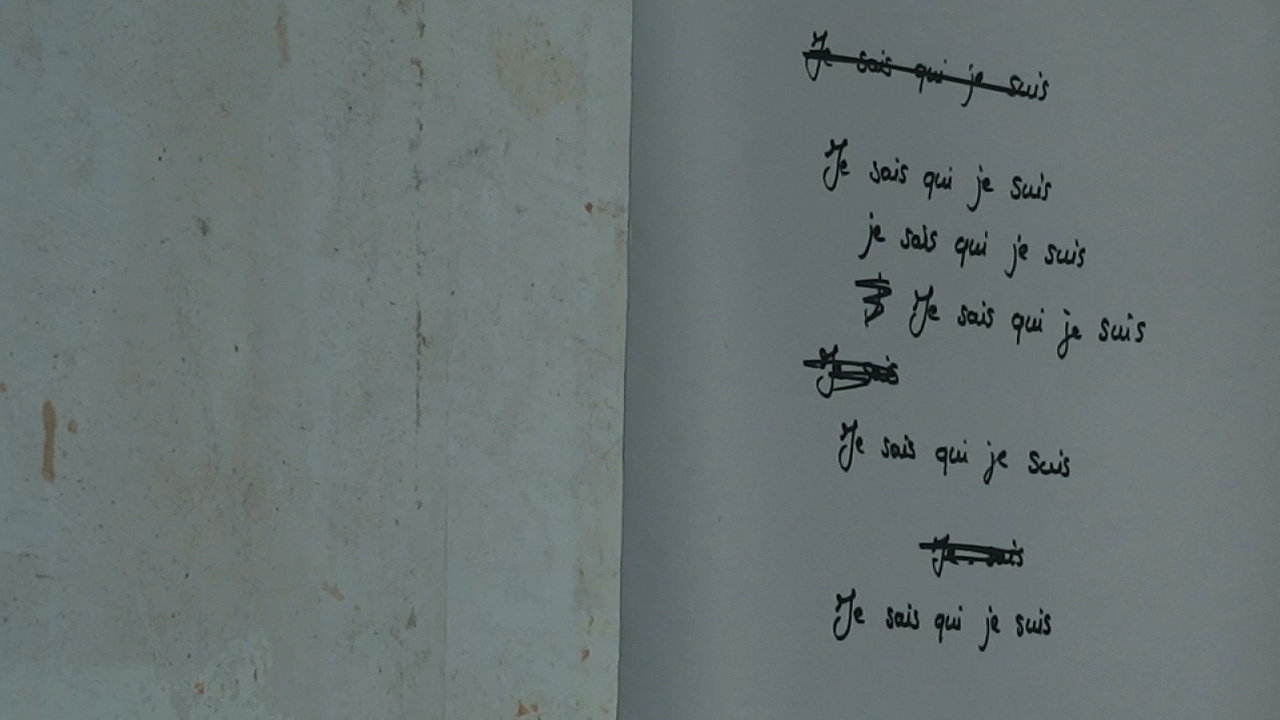 Je sais qui je suis
Je sais qui je suis
je sais qui je suis
Je sais qui je suis
Je sais
Je sais qui je suis
Je sais
Je sais qui je suis